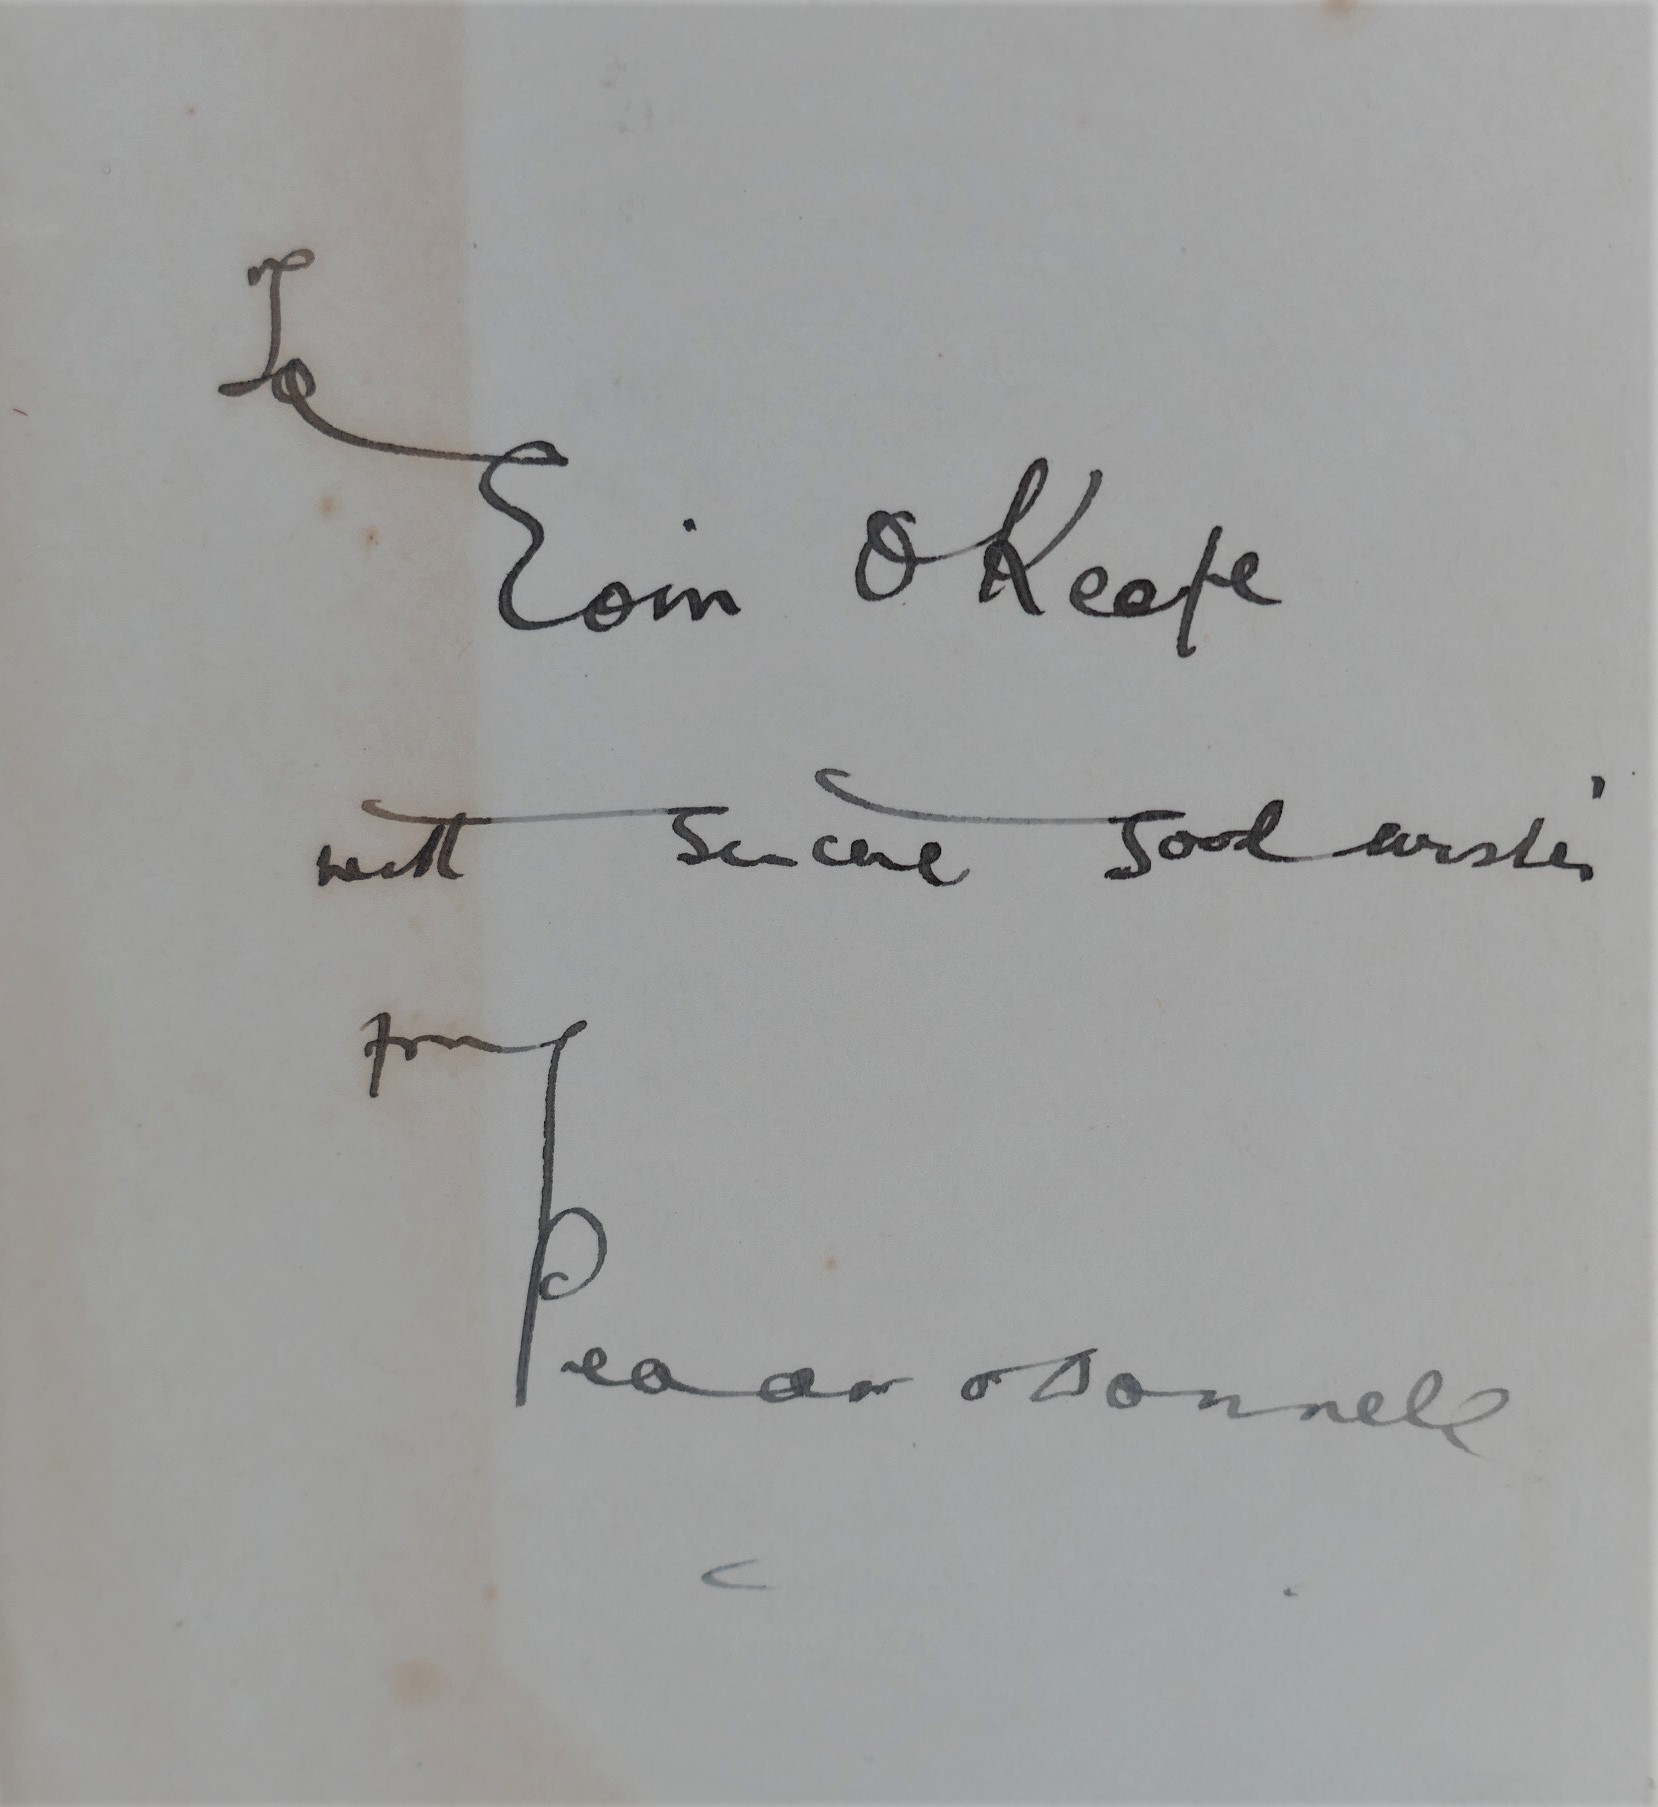 To
Eoin O Keefe
with sincere good wishes
from
Peadar O Donnell